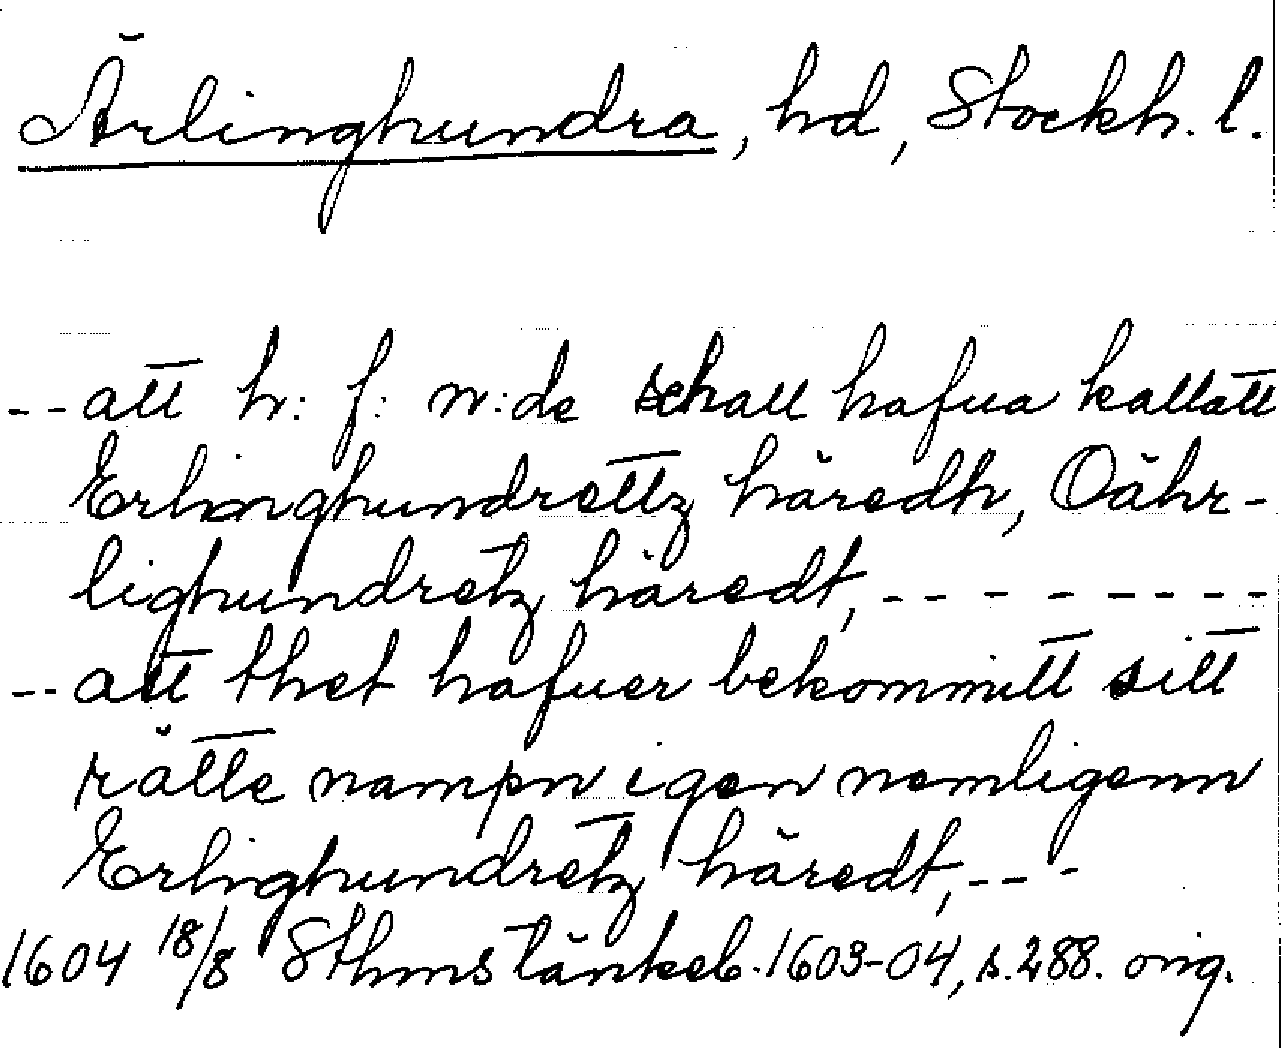 Ärlinghundra, hd, Stockh. l.
--att h: f: n:de schall hafua kallatt
Erlinghundrettz häredh, Oähr-
lighundretz häredt, --------
--att thet hafuer bekommitt sitt
rätte nampn igen nemligenn
Erlinghundretz häredt, ---
1604 18/8 Sthms tänkeb. 1603-04, s. 288. orig.